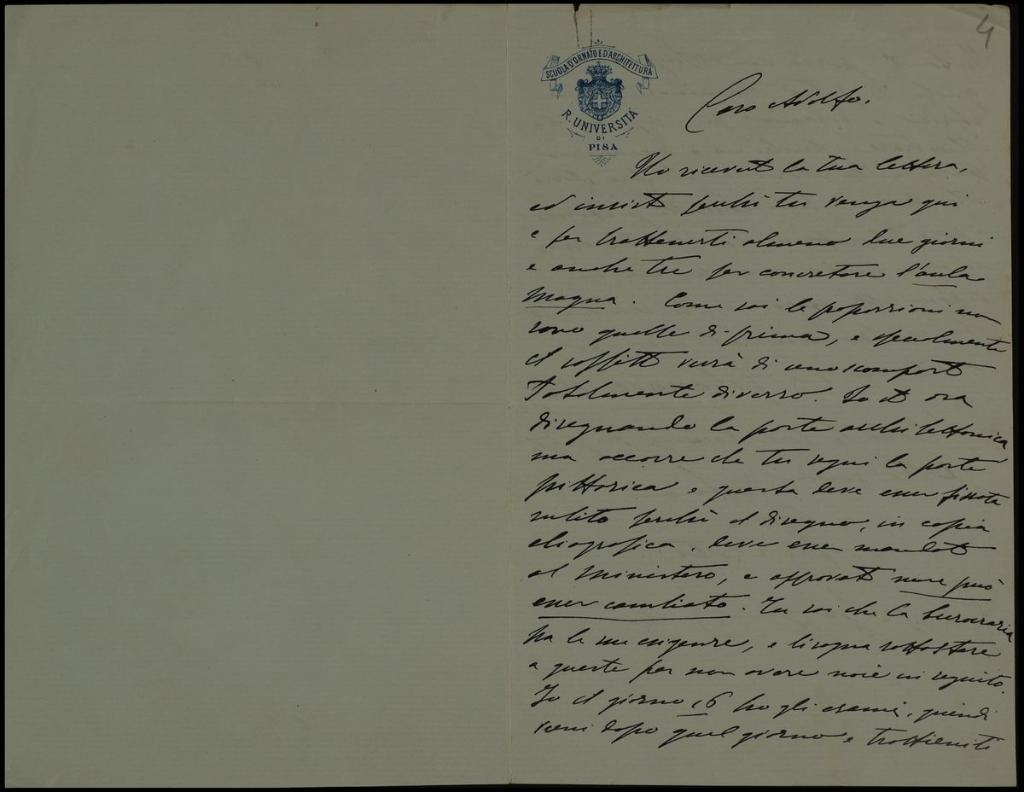 4
SCUOLA D'ORNATO ED'ARCHITETTURA
R. UNIVERSITÀ
DI
PISA
Caro Adolfo.
Ho ricevuto la tua lettera,
ed insisto perchè tu venga qui
e per trattenerti almeno due giorni
e anche tre per concretare l'aula
magna. Come sai le proporzioni non
sono quelle di prima, e specialmente
il soffitto verrà di uno scomparto
totalmente diverso. Io sto ora
disegnando la parte architettonica
ma occorre che tu segni la parte
pittorica e questa deve esser fissata
subito perchè il disegno, in copia
eliografica, deve esser mandato
al Ministero, e approvato non può
esser cambiato. Tu sai che la burocrazia
ha le sue esigenze, e bisogna sottostare
a queste per non avere noie in seguito.
Io il giorno 16 ho gli esami, quindi
vieni dopo quel giorno e trattieniti